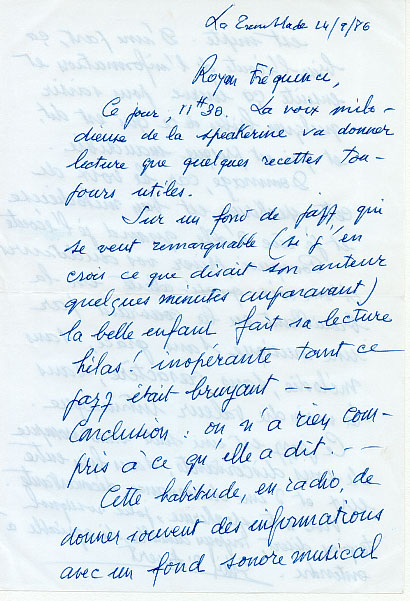 La Tremblade 14/9/86
Royan Fréquence,
Ce jour, 11H30. La voix mélo-
dieuse de la speakerine va donner
lecture que quelques recettes tou-
jours utiles.
Sur un fond de jazz qui
se veut remarquable (si j'en
crois ce que disait son auteur
quelques minutes auparavant)
la belle enfant fait sa lecture
hélas! inopérante tant ce
jazz était bruyant - - -
Conclusion : on n'a rien com-
pris à ce qu'elle a dit. - -
Cette habitude, en radio, de
donner souvent des informations
avec un fond sonore musical